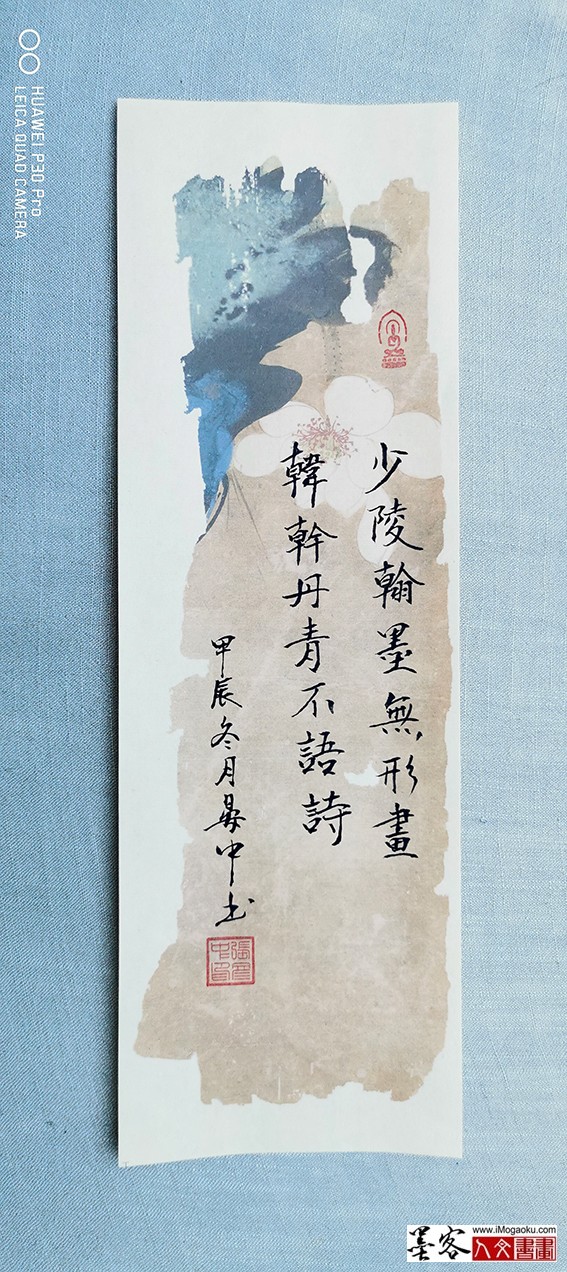 少陵翰墨無形畫
韓幹丹青不語詩
甲辰冬月晏中书
HUAWEI P30 Pro
LEICA QUAD CAMERA
墨客
www.iMogaoku.com
人文書畫